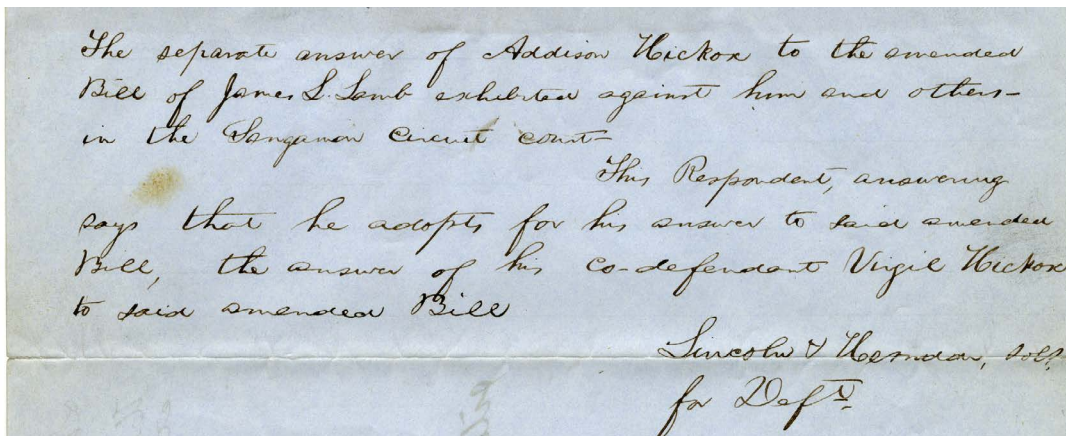 The separate answer of Addison Hickox to the amended
Bill of James L. Lamb exhibited against him and others–
in the Sangamon Circuit court–
This Respondent, answering
says that he adopts for his answer to said amended
Bill, the answer of his co-defendant Virgil Hickox
to said amended Bill
Lincoln & Herndon, sols.
for Defts.